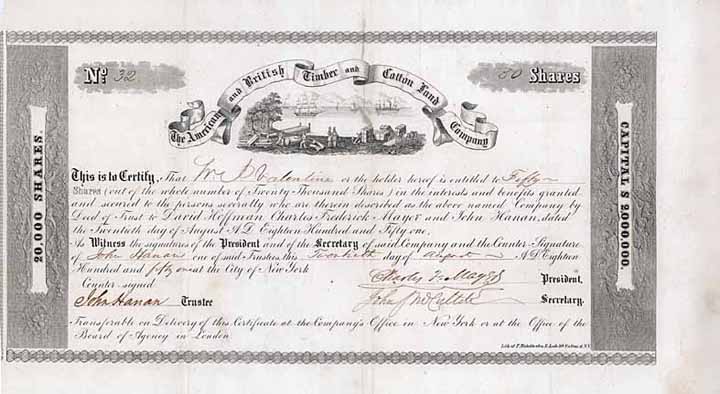 No. 32
50 Shares
The American and British Timber and Cotton Land Company
20,000 SHARES.
CAPITAL $ 2,000,000.
This is to Certify, That Wm Valentine or the holder hereof is entitled to Fifty
Shares (out of the whole number of Twenty Thousand Shares) in the interests and benefits granted
and secured to the persons severally who are therein described as the above named Company by
Deed of Trust to David Hoffman Charles Frederick Mayer and John Hanan, dated
the Twentieth day of August A.D. Eighteen Hundred and Fifty one.
As Witness the signatures of the President and of the Secretary of said Company and the Counter-Signature
of John Hanan one of said Trustees this Twentieth day of August A.D. Eighteen
Hundred and fifty one at the City of New York
Counter-signed
Charles F. Mayer President.
John Hanan Trustee
John Secretary.
Transferable on Delivery of this Certificate at the Company's Office in New York or at the Office of the
Board of Agency in London